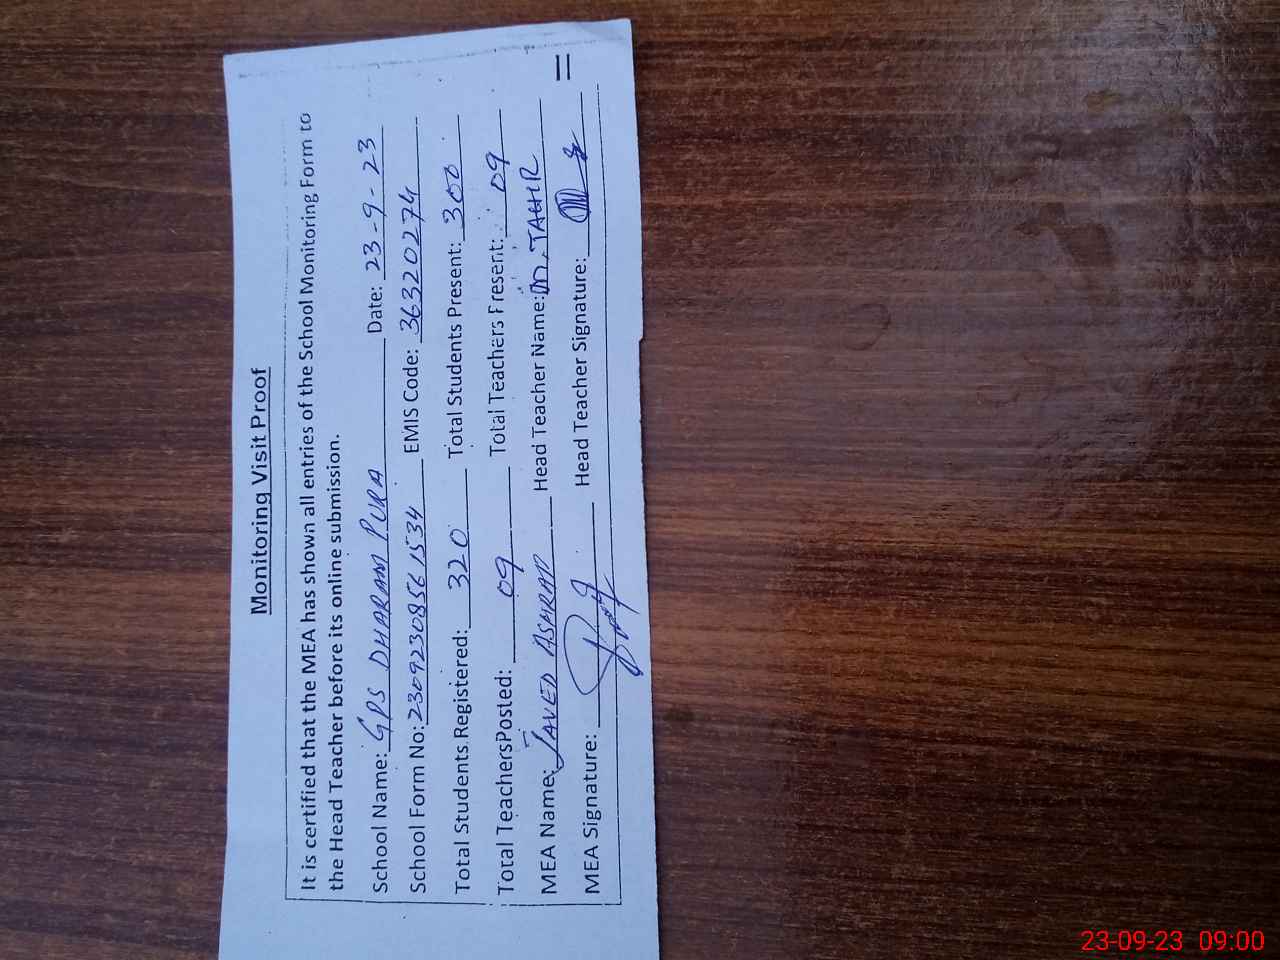 Monitoring Visit Proof
It is certified that the MEA has shown all entries of the School Monitoring Form to
the Head Teacher before its online submission.
School Name: GPS DHARAM PURA Date: 23-9-23
School Form No: 23092308561534 EMIS Code: 36320274
Total Students Registered: 320 Total Students Present: 300
Total TeachersPosted: 09 Total Teachers Present: 09
MEA Name: JAVED ASHRAF Head Teacher Name: M. TAHIR
MEA Signature: Head Teacher Signature:
23-09-23 09:00